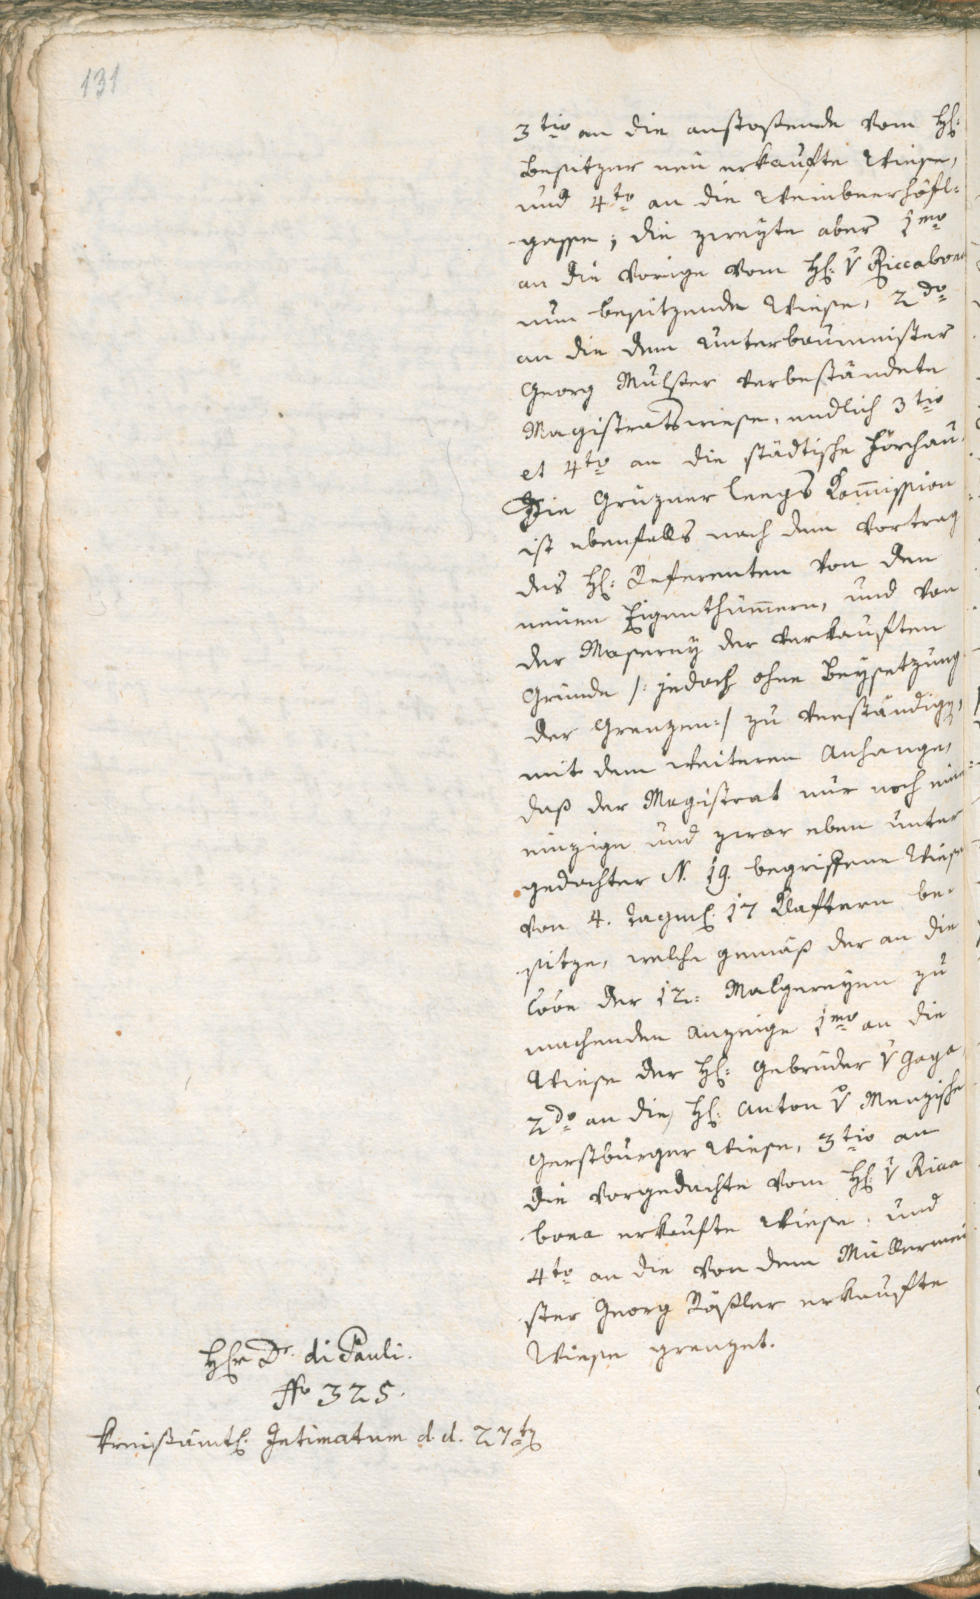 131
3tio an die anstoßende vom H:
Besitzer neu erkaufte Wiese,
und 4to an die Weinbnerhöfl=
gasse; die zweyte aber 1mo
an die vorige vom H: v Riccabona
nun besitzende Wiese, 2do
an die dem Unterbaumeister
Georg Mulser verbeständete
Magistratswiese, endlich 3tio
et 4to an die städtische Förchau.
Die Grüzner Leegs Kommission
ist ebenfalls nach dem Vortrag
des H: Referenten von den
neuen Eigenthümern, und von
der Maserey der verkauften
Gründe /: jedoch ohne Beysetzung
der Grenzen :/ zu verständigen,
mit dem weiteren Anhange,
daß der Magistrat nur noch eine
einzige und zwar eben unter
gedachter N. 19. begriffene Wiese
von 4. Tagm: 17 Klaftern be=
sitze, welche gemäß der an die
Löbe der 12: Malgereyen zu
machenden Anzeige 1mo an die
Wiese der H: Gebrüder v Gaga
2do an die H: Anton v Menzische
Gerstburger Wiese, 3tio an
die vorgedachte vom H: v Ricca
bona erkaufte Wiese, und
4to an die von dem Müllermei
ster Georg Rößler erkaufte
Wiese grenzet.
Hr Dr di Pauli.
No 325.
Kreisämtl: Intimatum d. d. 27ten